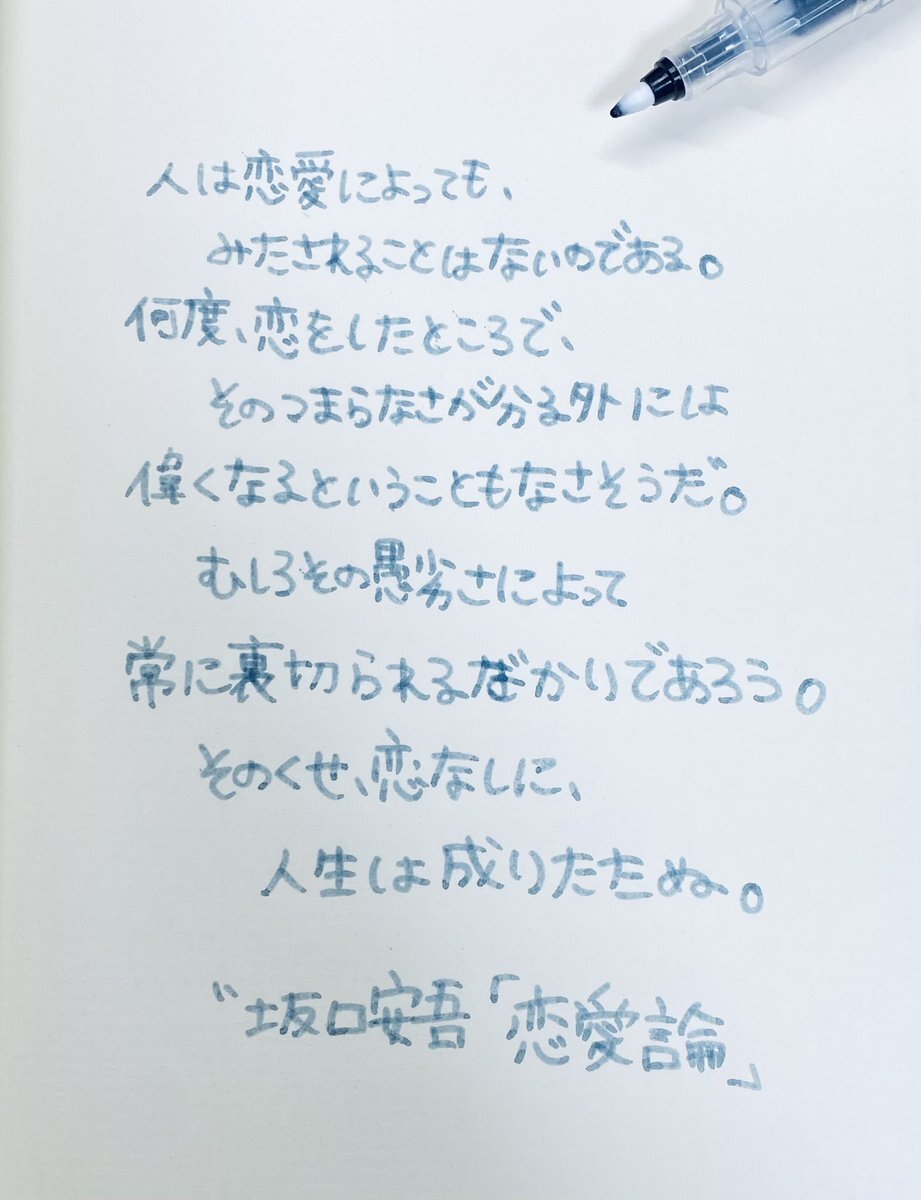 人は恋愛によっても、
みたされることはないのである。
何度、恋をしたところで、
そのつまらなさが分る外には
偉くなるということもなさそうだ。
むしろその愚劣さによって
常に裏切られるばかりであろう。
そのくせ、恋なしに、
人生は成りたたぬ。
〃坂口安吾「恋愛論」